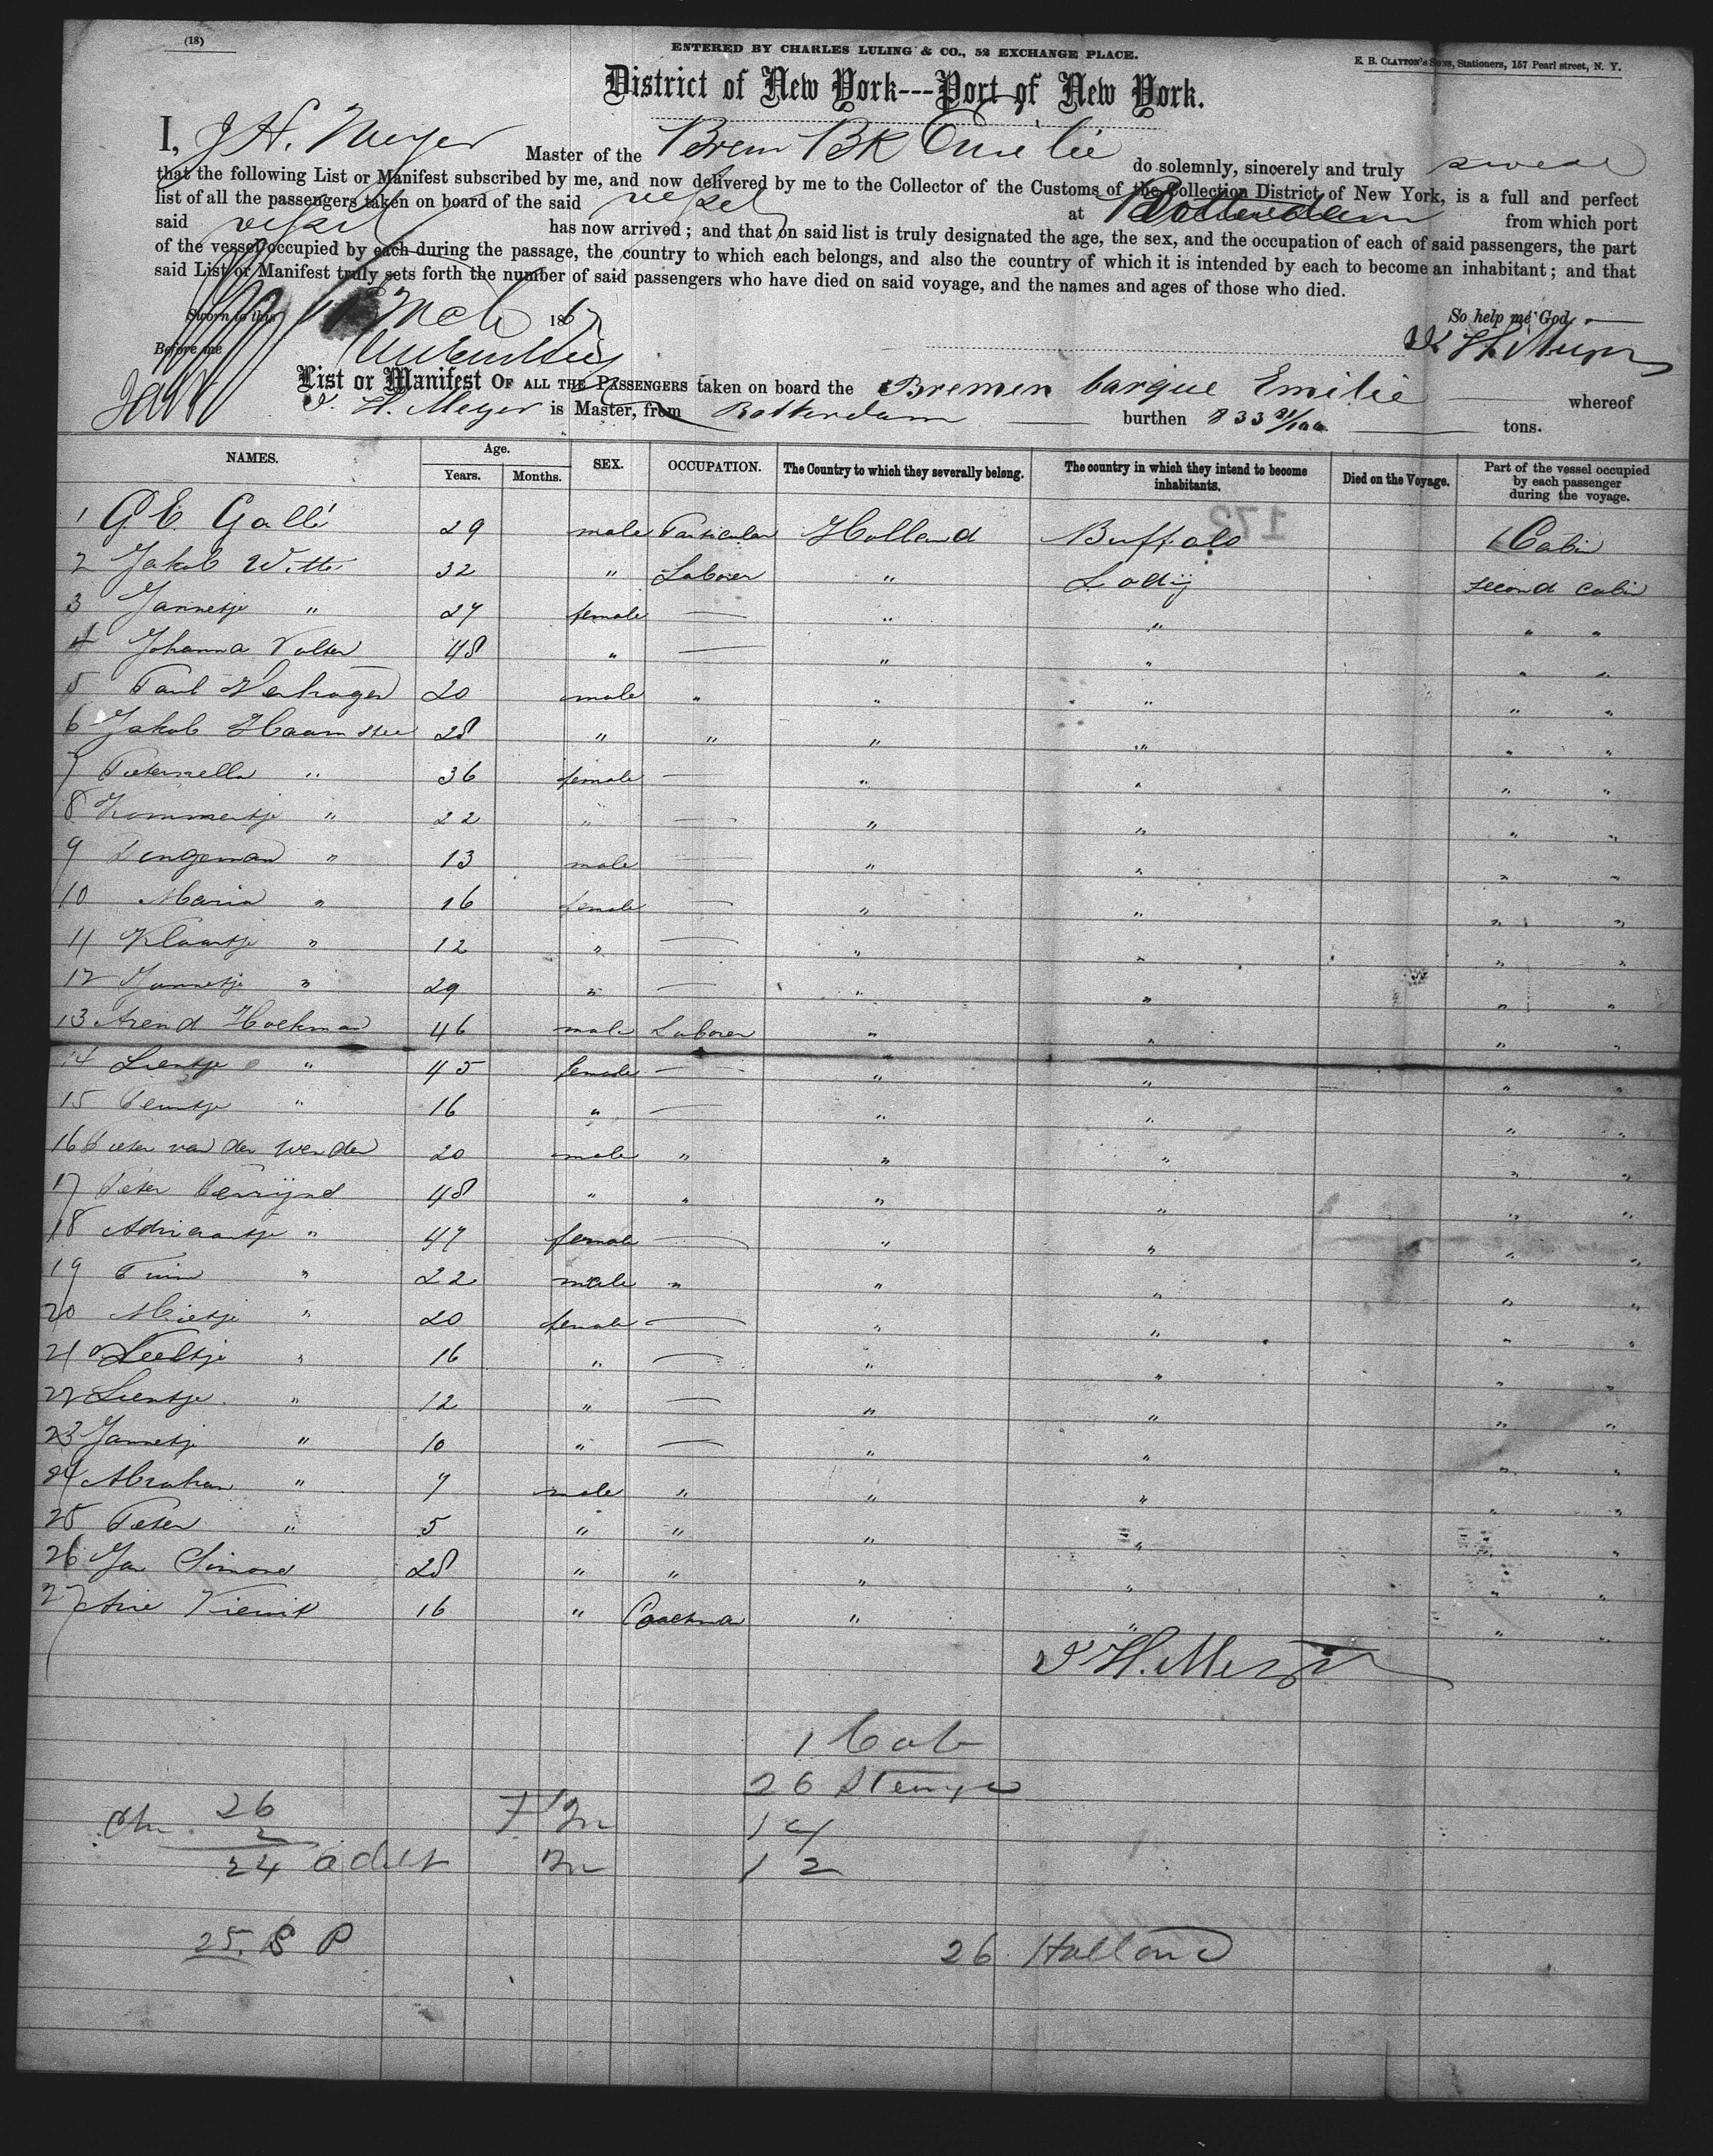 (18)
ENTERED BY CHARLES LULING & CO., 52 EXCHANGE PLACE.
E. B. CLAYTON'S SONS, Stationers, 157 Pearl street, N. Y.
District of New York---Port of New York.
I, J H. Meyer Master of the Brem BK Emilie do solemnly, sincerely and truly swear
that the following List or Manifest subscribed by me, and now delivered by me to the Collector of the Customs of the Collection District of New York, is a full and perfect
list of all the passengers taken on board of the said vessel at Rotterdam from which port
said vessel has now arrived; and that on said list is truly designated the age, the sex, and the occupation of each of said passengers, the part
of the vessel occupied by each during the passage, the country to which each belongs, and also the country of which it is intended by each to become an inhabitant; and that
said List or Manifest truly sets forth the number of said passengers who have died on said voyage, and the names and ages of those who died.
Sworn to this Mch 1867 So help me God.
Before me J H Meyer
List or Manifest OF ALL THE PASSENGERS taken on board the Bremen barque Emilie whereof
J. H. Meyer is Master, from Rotterdam burthen 833 tons.
NAMES. Age. Years. Months. SEX. OCCUPATION. The Country to which they severally belong. The country in which they intend to become inhabitants. Died on the Voyage. Part of the vessel occupied by each passenger during the voyage.
172
1 G E Gallé 29 male Particular Holland Buffalo 1 Cabin
2 Jakob Witte 32 " Laborer " Lodij second cabin
3 Jannetje " 27 female — " " " "
4 Johanna Volter 48 " — " " " "
5 Paul Verhagen 20 male " " " " "
6 Jakob Haamstee 28 " " " " " "
7 Pieternella " 36 female — " " " "
8 Kommertje " 22 " — " " " "
9 Dingeman " 13 male — " " " "
10 Maria " 16 female — " " " "
11 Klaartje " 12 " — " " " "
12 Jannetje " 29 " — " " " "
13 Arend Hoekman 46 male Laborer " " " "
14 Lientje " 45 female — " " " "
15 Teuntje " 16 " — " " " "
16 Pieter van der Wenden 20 male " " " " "
17 Peter 48 " " " " " "
18 Adriaantje " 47 female — " " " "
19 " 22 male " " " " "
20 Mietje " 20 female — " " " "
21 Neeltje " 16 " — " " " "
22 Lientje " 12 " — " " " "
23 Jannetje " 10 " — " " " "
24 Abraham " 7 male " " " " "
25 Peter " 5 " " " " " "
26 Jan Simons 28 " " " " " "
27 Arie 16 " Coachman " " " "
J H. Meyer
1 Cab
26 Steerge
26 14
2 12
24 adult
25. S P
26 Holland